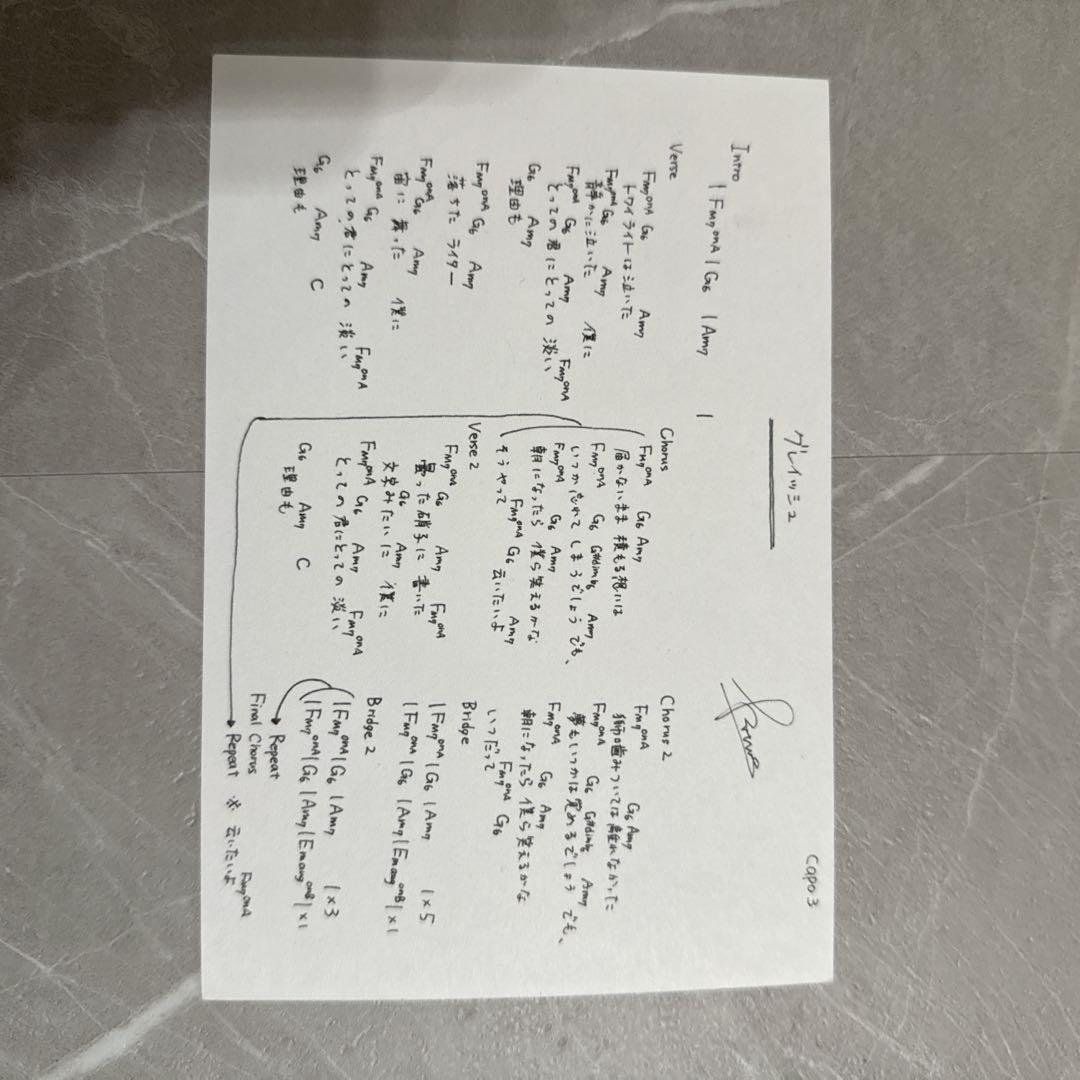 グレイッシュ
Capo 3
Intro
| FM7onA | G6 | Am7 |
Verse
FM7onA G6 Am7
トワイライトは泣いた
FM7onA G6 Am7
静かに泣いた 僕に
FM7onA G6 Am7 FM7onA
とっての君にとっての 淡い
G6 Am7
理由も
FM7onA G6 Am7
落ちた ライター
FM7onA G6 Am7
宙に 舞った 僕に
FM7onA G6 Am7 FM7onA
とっての君にとっての 淡い
G6 Am7 C
理由も
Chorus
FM7onA G6 Am7
届かないまま 積もる想いは
FM7onA G6 G#dim Am7
いつか忘れてしまうでしょう でも、
FM7onA G6 Am7
朝になったら 僕ら笑えるかな
FM7onA G6 Am7
そうやって 云いたいよ
Verse 2
FM7onA G6 Am7 FM7onA
曇った硝子に 書いた
G6 Am7
文字みたいに 僕に
FM7onA G6 Am7 FM7onA
とっての君にとっての 淡い
G6 Am7 C
理由も
Chorus 2
FM7onA G6 Am7
獅噛みついては 離れなかった
FM7onA G6 G#dim Am7
夢もいつかは覚めるでしょう でも、
FM7onA G6 Am7
朝になったら 僕ら笑えるかな
FM7onA G6
いつだって
Bridge
| FM7onA | G6 | Am7 | x5
| FM7onA | G6 | Am7 | EmaugonB | x1
Bridge 2
| FM7onA | G6 | Am7 | x3
| FM7onA | G6 | Am7 | EmaugonB | x1
Repeat
Final Chorus
FM7onA
Repeat ※ 云いたいよ